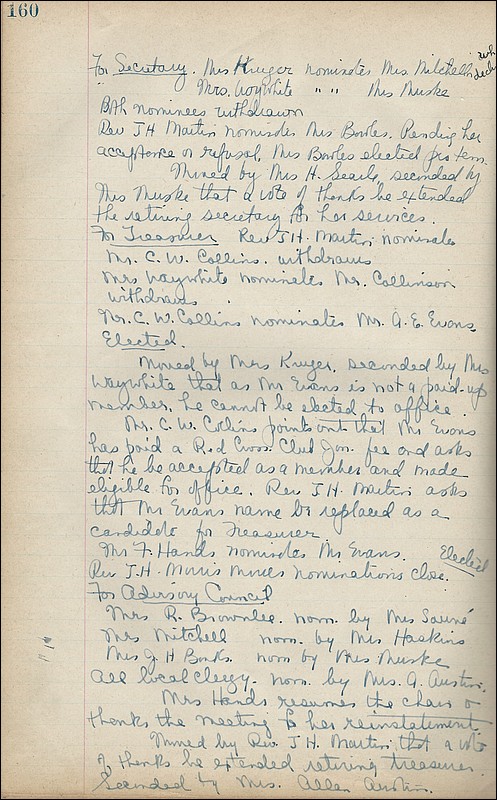 160
For Secretary. Mrs Kruger nominates Mrs. Mitchell
" Mrs. Waywhite " " Mrs Muske
Both nominees withdrawn
Rev J H Martin nominates Mrs Bowles. Pending her
acceptance or refusal, Mrs Bowles elected pro tem.
Moved by Mrs H. Searle, seconded by
Mrs Muske that a vote of thanks be extended
the retiring secretary for her services.
For Treasurer Rev J.H. Martin nominates
Mr. C. W. Collins. withdraws
Mrs Waywhite nominates Mr. Collinson
withdraws.
Mr. C. W. Collins nominates Mr. A. E. Evans
Elected.
Moved by Mrs Kruger, seconded by Mrs
Waywhite that as Mr Evans is not a paid-up
member, he cannot be elected to office.
Mr. C. W. Collins points out that Mr Evans
has paid a Red Cross Club Jan. fee and asks
that he be accepted as a member and made
eligible for office. Rev J.H. Martin asks
that Mr Evans name be replaced as a
candidate for Treasurer
Mr F. Hands nominates Mr Evans. Elected
Rev J.H. Morris moves nominations close.
For Advisory Council
Mrs. R. Brownlee. nom. by Mrs Sauvé
Mrs Mitchell nom. by Mrs Haskins
Mrs J. H Bonks. nom by Mrs Muske
All local clergy. nom. by Mrs. A. Austin.
Mrs Hands resumes the chair &
thanks the meeting for her reinstatement.
Moved by Rev. J. H. Martin that a vote
of thanks be extended retiring treasurer.
Seconded by Mrs. Allan Austin.